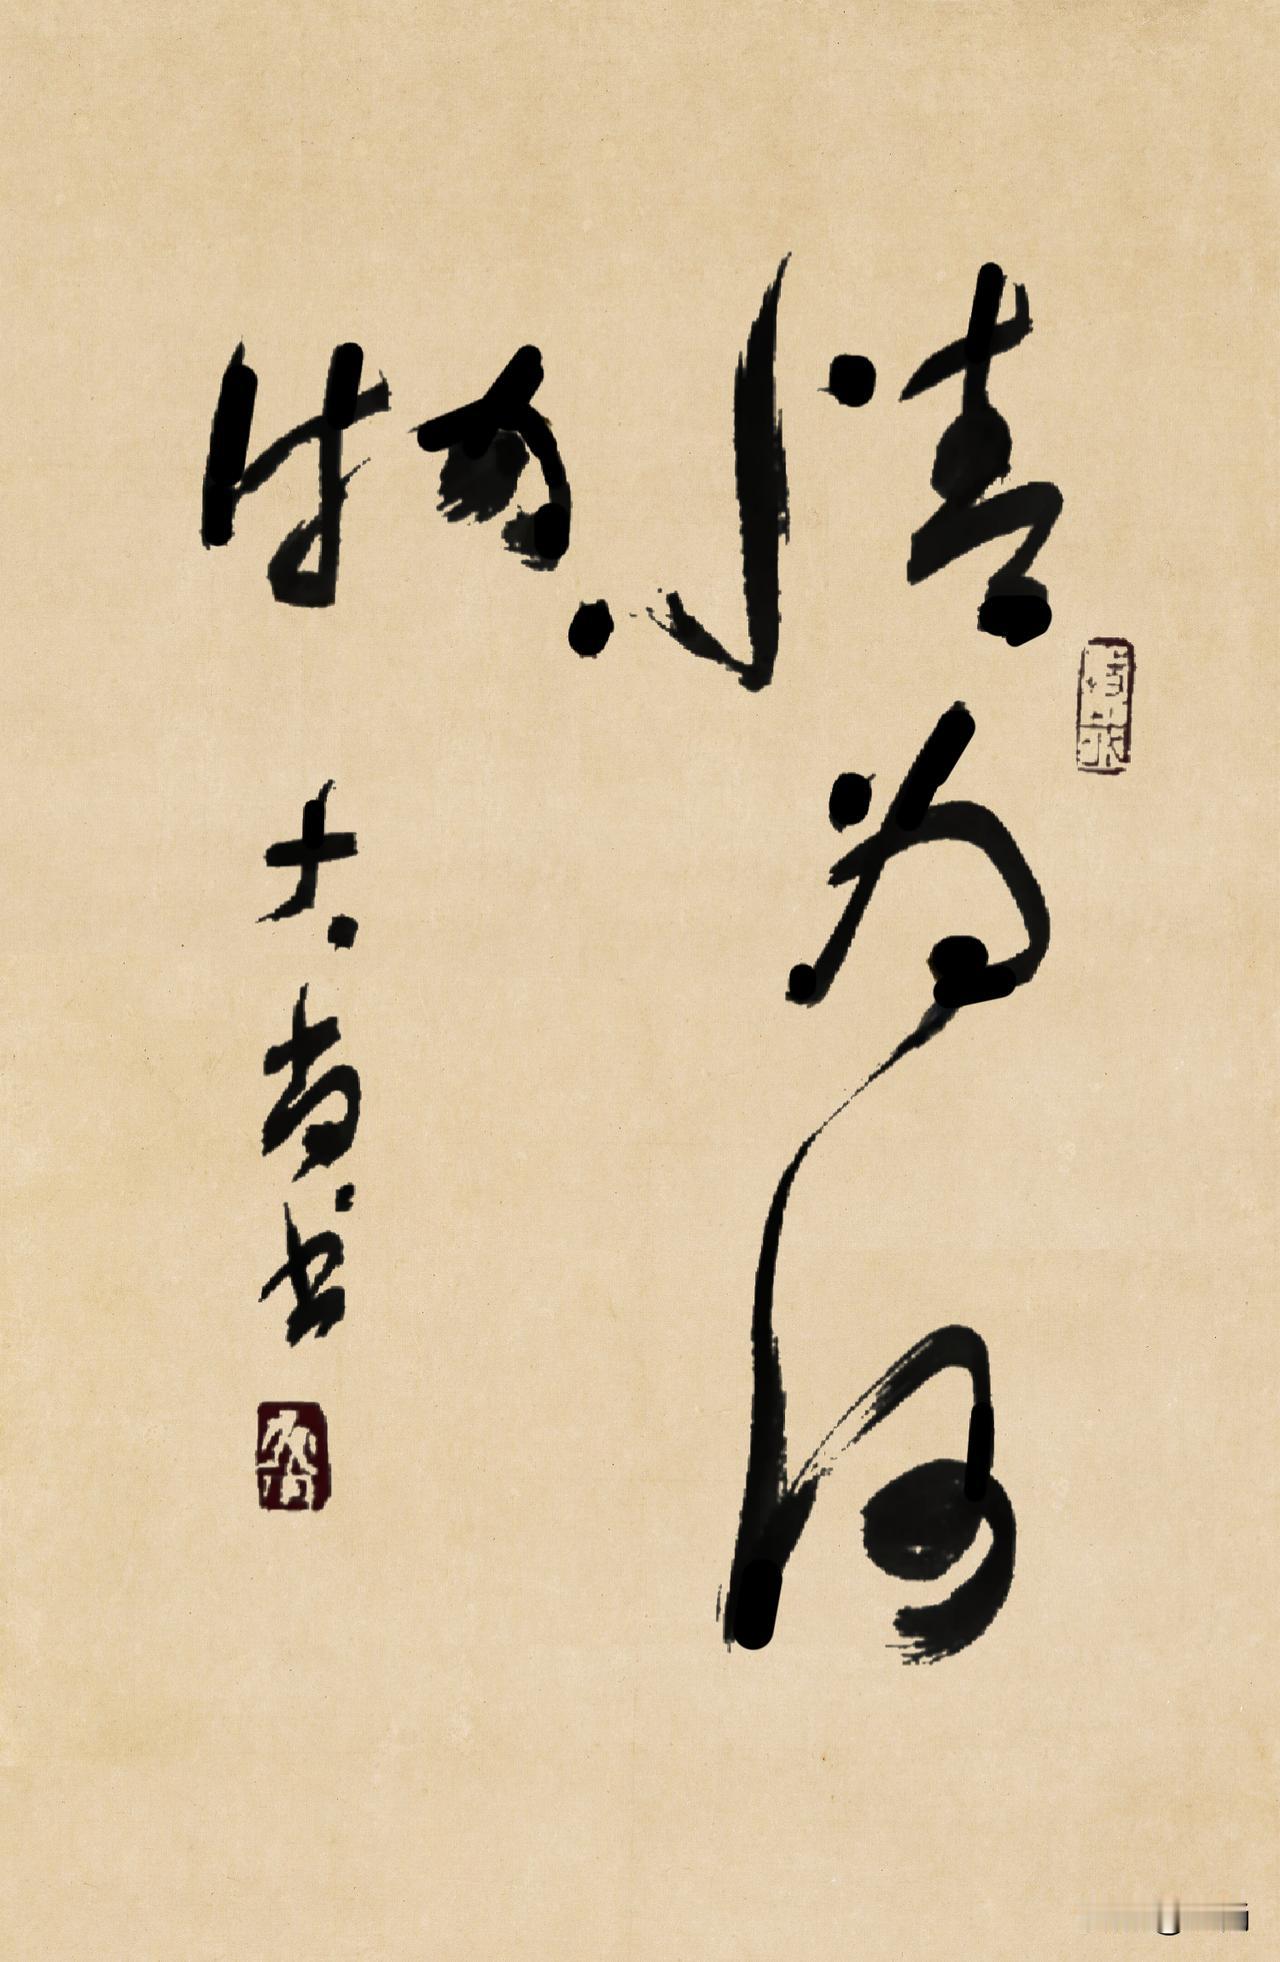 情为何
物
大尚书